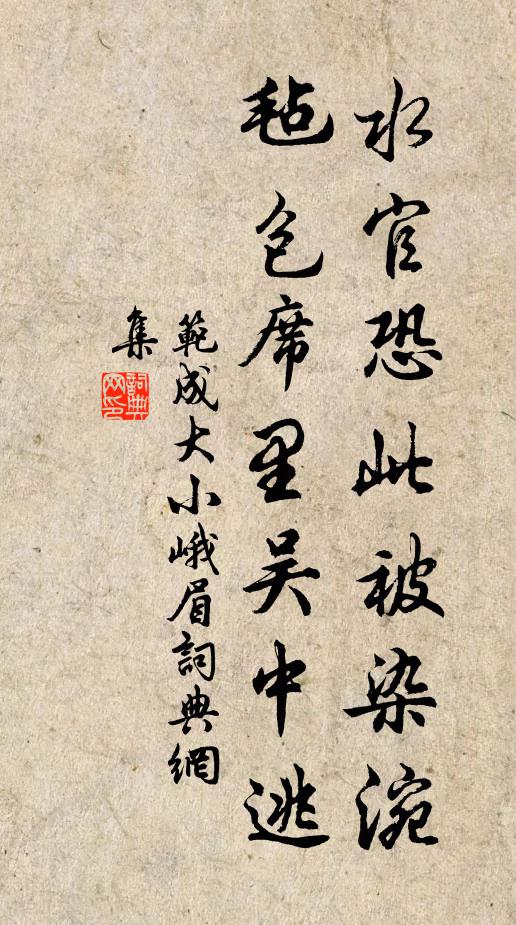 水官恐此被染涴
毡包席里吴中逃
範成大小峨眉詞典網
集
詞典网印